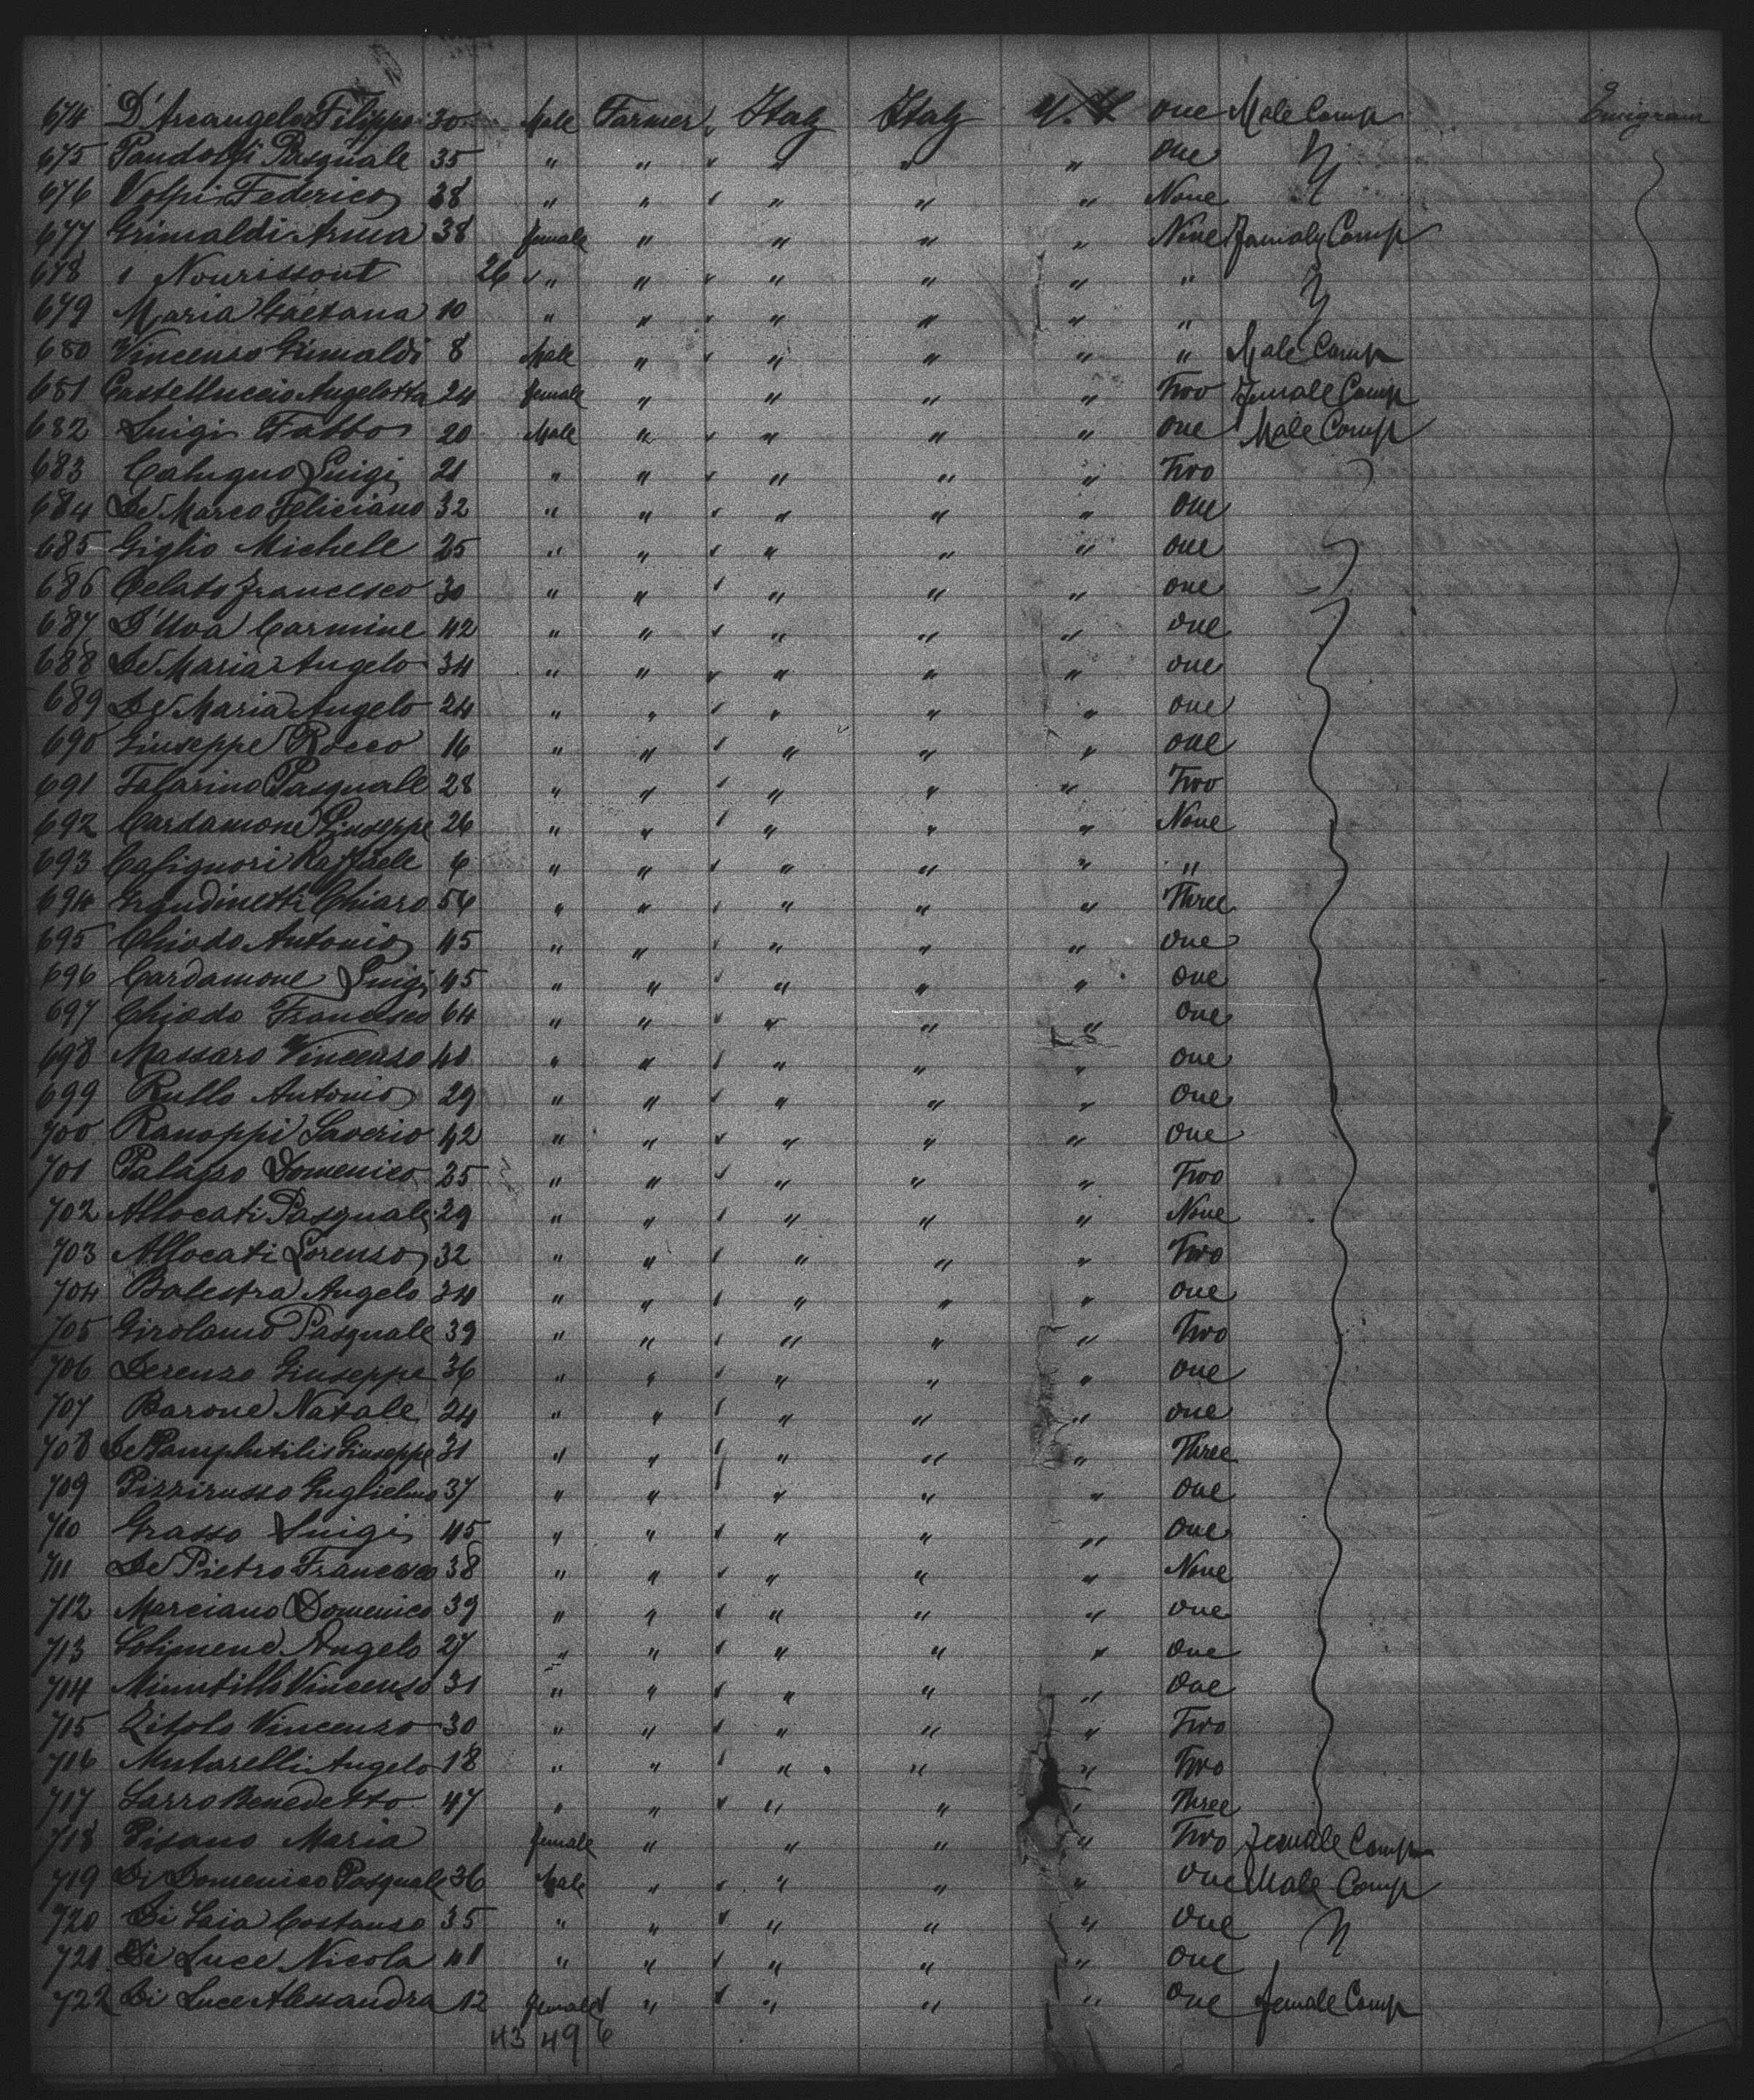 674 D'Arcangelo Filippo 30 Male Farmer Italy Italy U. S. One Male Comp Emigrant
675 Pandolfi Pasquale 35 " " " " " One "
676 Volpi Federico 38 " " " " " None "
677 Grimaldi Anna 38 female " " " " None Female Comp
678 1 Nourissont 26 " " " " " " "
679 Maria Gaetana 10 " " " " " " "
680 Vincenzo Grimaldi 8 Male " " " " " Male Comp
681 Castelluccio Angelotta 24 female " " " " Two Female Comp
682 Luigi Fabbo 20 Male " " " " One Male Comp
683 Calugno Luigi 21 " " " " " Two
684 De Marco Feliciano 32 " " " " " One
685 Giglio Michele 25 " " " " " One
686 Celato Francesco 30 " " " " " One
687 D'Uva Carmine 42 " " " " " One
688 De Maria Angelo 34 " " " " " One
689 De Maria Angelo 24 " " " " " One
690 Giuseppe Rocco 16 " " " " " One
691 Falarino Pasquale 28 " " " " " Two
692 Cardamone Giuseppe 26 " " " " " None
693 Cafignori Raffaele 6 " " " " " "
694 Grandinetti Chiaro 56 " " " " " Three
695 Chiodo Antonio 45 " " " " " One
696 Cardamone Luigi 45 " " " " " One
697 Chiodo Francesco 64 " " " " " One
698 Massaro Vincenzo 40 " " " " " One
699 Rullo Antonio 29 " " " " " One
700 Ranoppi Saverio 42 " " " " " One
701 Palazzo Domenico 25 " " " " " Two
702 Allocati Pasquale 29 " " " " " None
703 Allocati Lorenzo 32 " " " " " Two
704 Balestra Angelo 34 " " " " " One
705 Girolamo Pasquale 39 " " " " " Two
706 Derenzo Giuseppe 36 " " " " " One
707 Barone Natale 24 " " " " " One
708 De Pamphitilis Giuseppe 31 " " " " " Three
709 Pizzirusso Guglielmo 37 " " " " " One
710 Grasso Luigi 45 " " " " " One
711 De Pietro Francesco 38 " " " " " None
712 Marciano Domenico 39 " " " " " One
713 Solimene Angelo 27 " " " " " One
714 Minutillo Vincenzo 31 " " " " " One
715 Zitolo Vincenzo 30 " " " " " Two
716 Mutarelli Angelo 18 " " " " " Two
717 Sarro Benedetto 47 " " " " " Three
718 Pisano Maria female " " " " Two Female Comp
719 Di Domenico Pasquale 36 Male " " " " One Male Comp
720 Di Laia Costanzo 35 " " " " " One "
721 Di Luce Nicola 41 " " " " " One
722 Di Luce Alessandra 12 female " " " " One female Comp
43 49 6